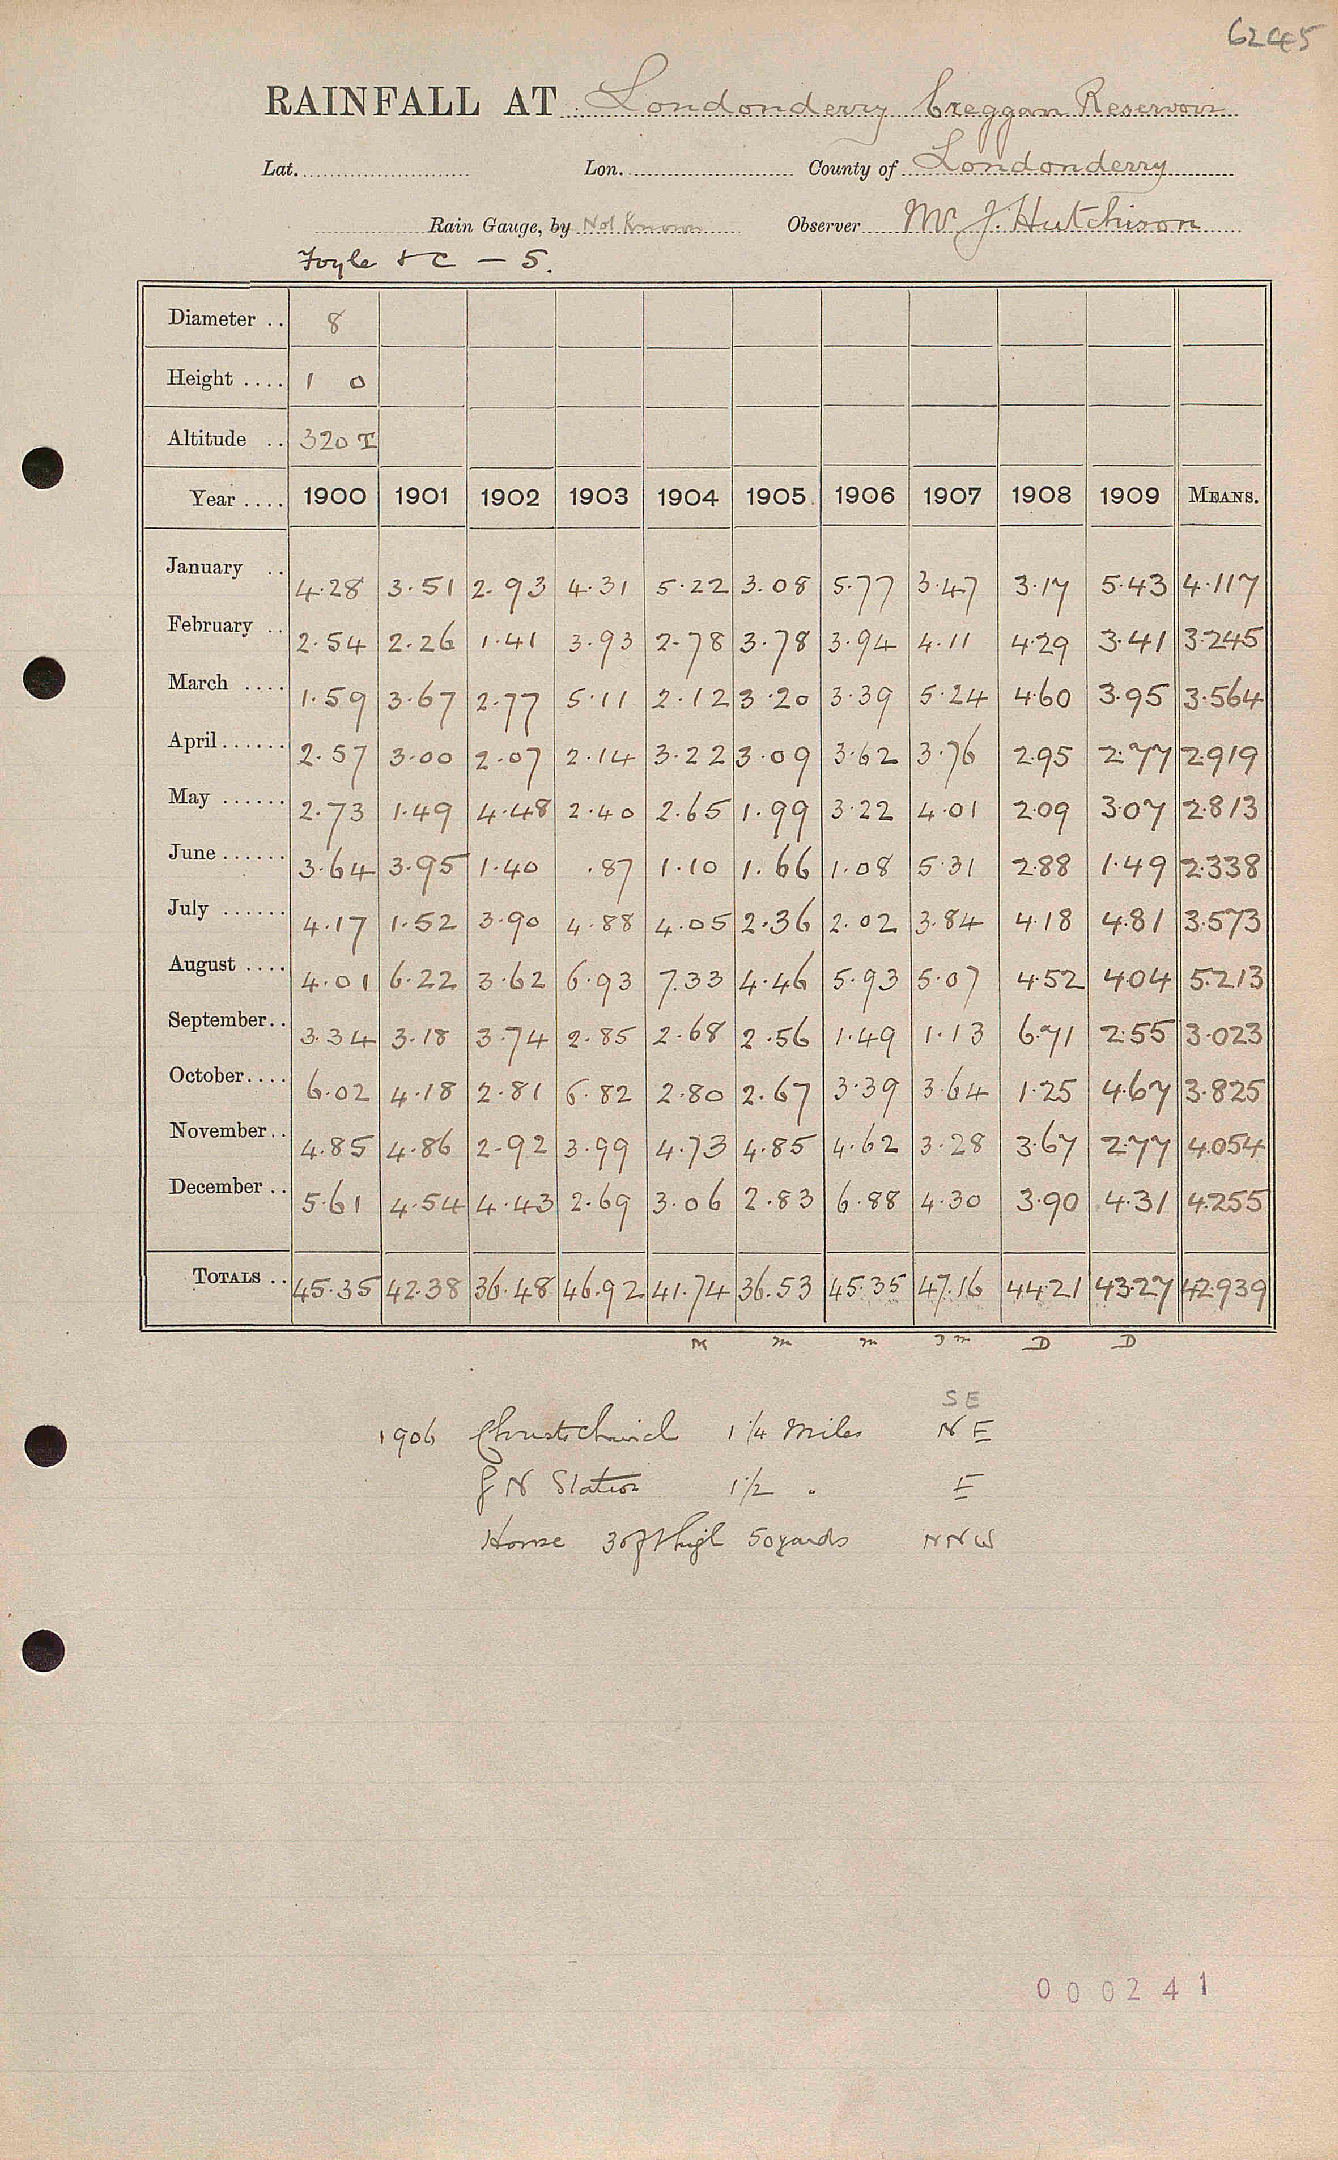 6245
RAINFALL AT Londonderry Creggan Reservoir
Lat. Lon. County of Londonderry
Rain Gauge, by Not Known Observer Mr J. Hutchison
Foyle & C — 5.
Diameter .. 8
Height .... 1 0
Altitude .. 320 T
Year .... 1900 1901 1902 1903 1904 1905 1906 1907 1908 1909 MEANS.
January .. 4.28 3.51 2.93 4.31 5.22 3.08 5.77 3.47 3.17 5.43 4.117
February .. 2.54 2.26 1.41 3.93 2.78 3.78 3.94 4.11 4.29 3.41 3.245
March .... 1.59 3.67 2.77 5.11 2.12 3.20 3.39 5.24 4.60 3.95 3.564
April ...... 2.57 3.00 2.07 2.14 3.22 3.09 3.62 3.76 2.95 2.77 2.919
May ...... 2.73 1.49 4.48 2.40 2.65 1.99 3.22 4.01 2.09 3.07 2.813
June ...... 3.64 3.95 1.40 .87 1.10 1.66 1.08 5.31 2.88 1.49 2.338
July ...... 4.17 1.52 3.90 4.88 4.05 2.36 2.02 3.84 4.18 4.81 3.573
August .... 4.01 6.22 3.62 6.93 7.33 4.46 5.93 5.07 4.52 4.04 5.213
September .. 3.34 3.18 3.74 2.85 2.68 2.56 1.49 1.13 6.71 2.55 3.023
October .... 6.02 4.18 2.81 6.82 2.80 2.67 3.39 3.64 1.25 4.67 3.825
November .. 4.85 4.86 2.92 3.99 4.73 4.85 4.62 3.28 3.67 2.77 4.054
December .. 5.61 4.54 4.43 2.69 3.06 2.83 6.88 4.30 3.90 4.31 4.255
TOTALS .. 45.35 42.38 36.48 46.92 41.74 36.53 45.35 47.16 44.21 43.27 42.939
m m D D
SE
1906 Christchurch 1 1/4 Miles NE
G N Station 1 1/2 " E
House 30ft high 50 yards NNW
000241